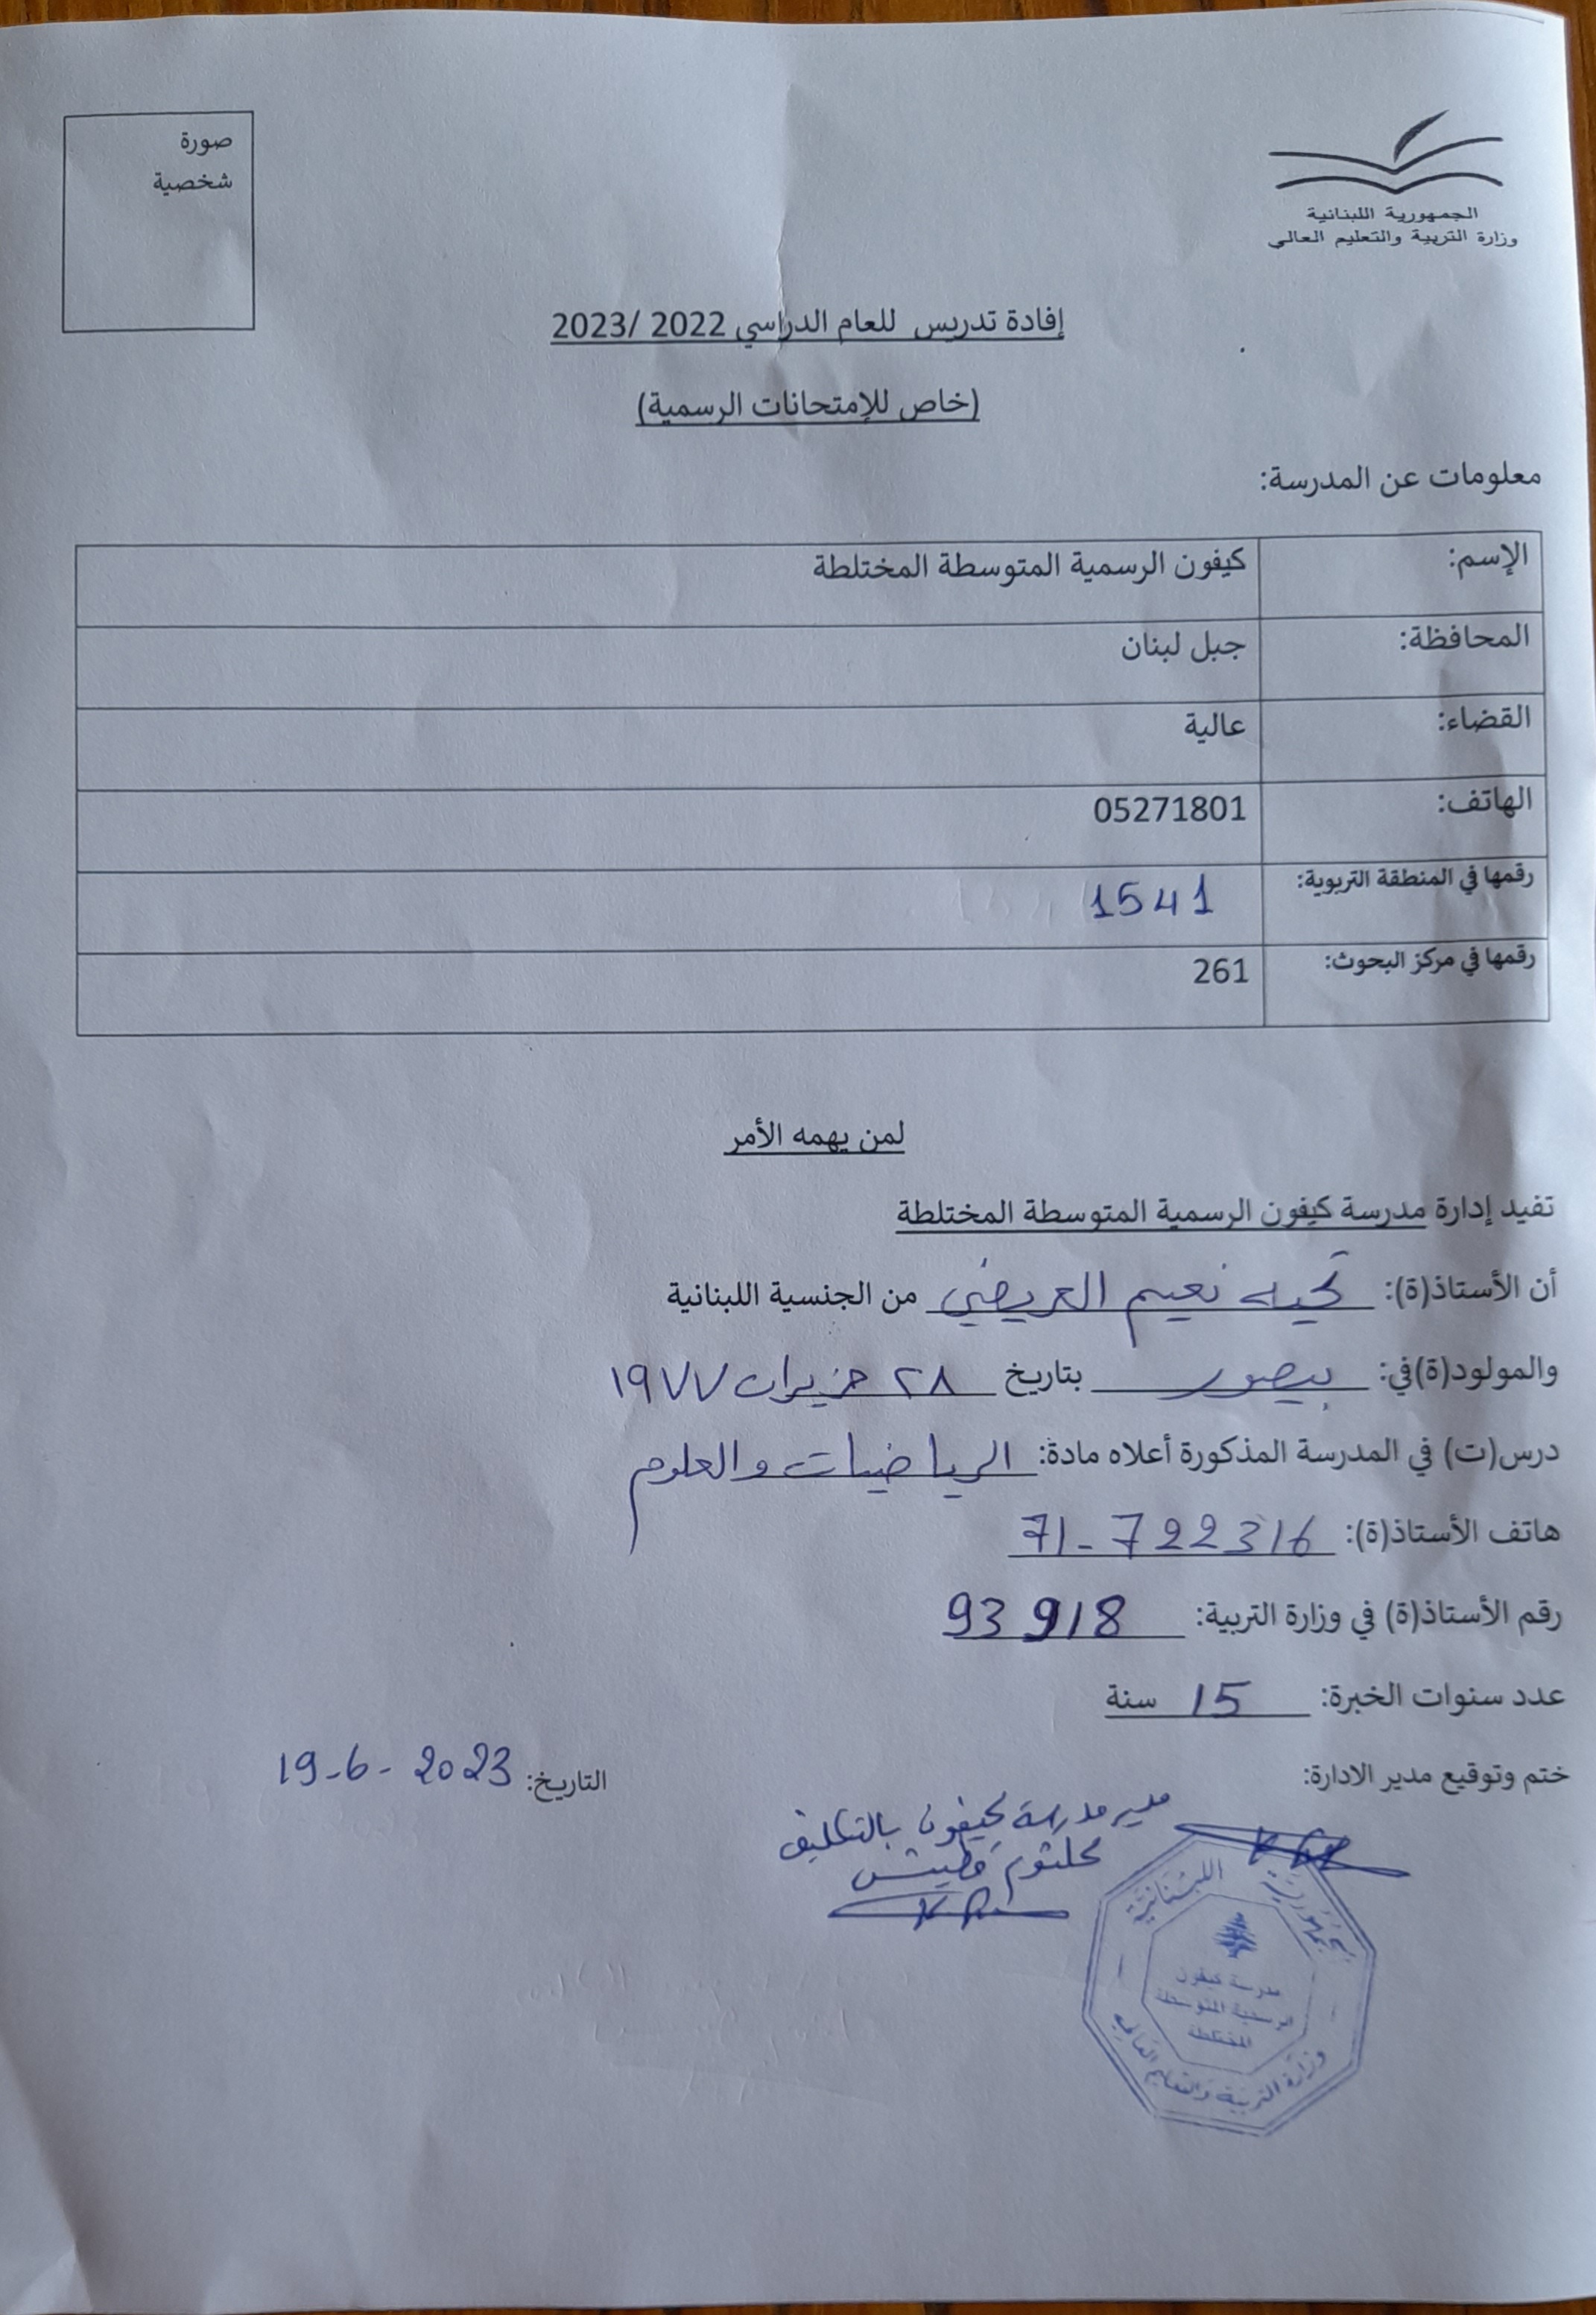 صورة
شخصية
الجمهورية اللبنانية
وزارة التربية والتعليم العالي
إفادة تدريس للعام الدراسي 2022 /2023
(خاص للإمتحانات الرسمية)
معلومات عن المدرسة:
الإسم: كيفون الرسمية المتوسطة المختلطة
المحافظة: جبل لبنان
القضاء: عالية
الهاتف: 05271801
رقمها في المنطقة التربوية: 1541
رقمها في مركز البحوث: 261
لمن يهمه الأمر
تفيد إدارة مدرسة كيفون الرسمية المتوسطة المختلطة
أن الأستاذ(ة): تحية نعيم العريضي من الجنسية اللبنانية
والمولود(ة)في: بيصور بتاريخ ٢٨ حزيران ١٩٧٧
درس(ت) في المدرسة المذكورة أعلاه مادة: الرياضيات والعلوم
هاتف الأستاذ(ة): 71-722316
رقم الأستاذ(ة) في وزارة التربية: 93918
عدد سنوات الخبرة: 15 سنة
ختم وتوقيع مدير الادارة:
التاريخ: 19-6-2023
مدير مدرسة كيفون بالتكليف
كلثوم قطيش
الجمهورية اللبنانية
مدرسة كيفون
الرسمية المتوسطة
المختلطة
وزارة التربية والتعليم العالي